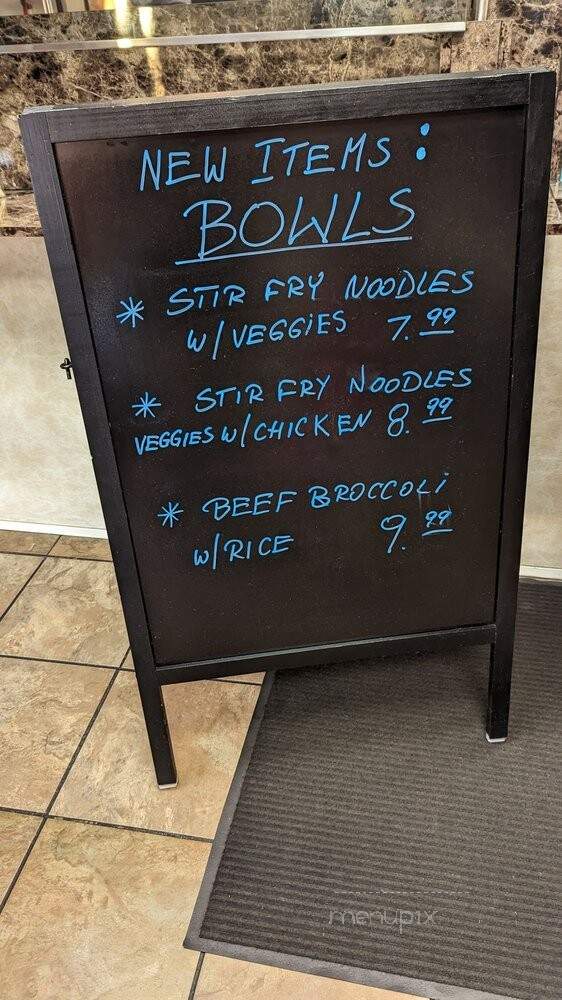 NEW ITEMS:
BOWLS
* STIR FRY NOODLES
W/VEGGIES 7.99
* STIR FRY NOODLES
VEGGIES W/CHICKEN 8.99
* BEEF BROCCOLi
W/RICE 9.99
menupix